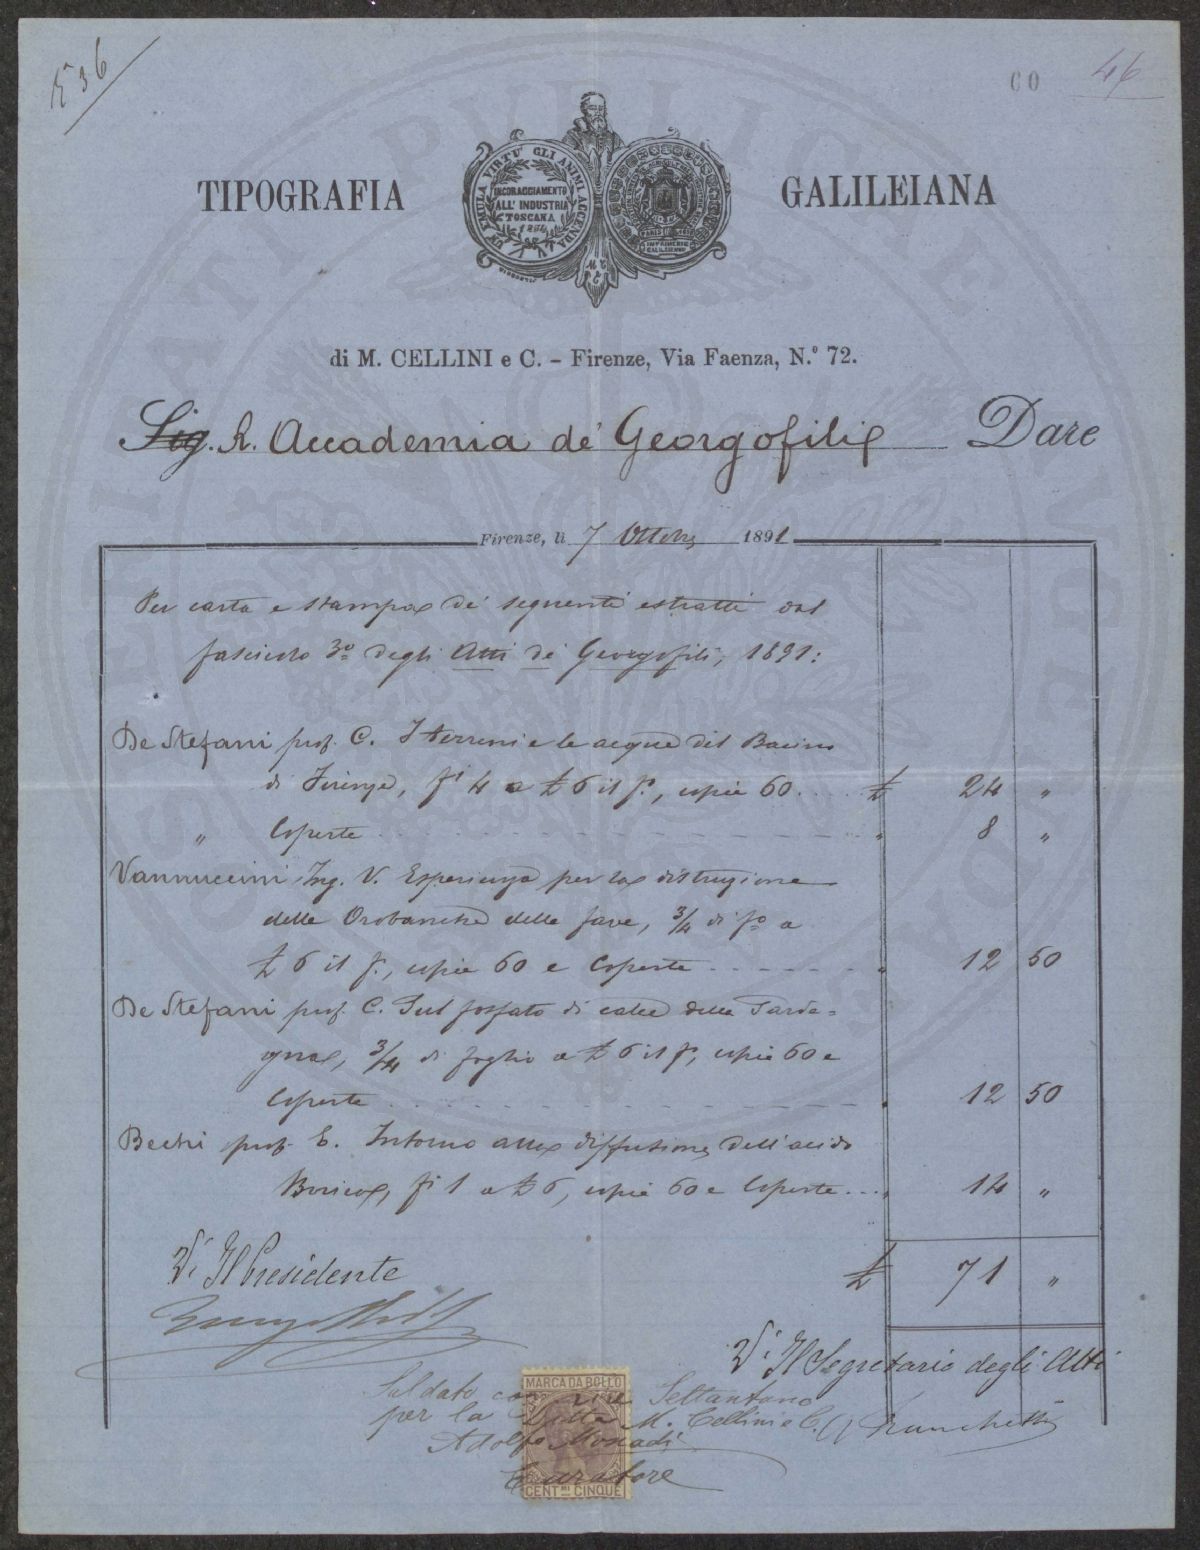 1536
60 46
TIPOGRAFIA GALILEIANA
VIRTU' GLI ANIMI ACCENDA
INCORAGGIAMENTO
ALL' INDUSTRIA
TOSCANA
1854
IMPRIMERIE
GALILEIENNE
di M. CELLINI e C. – Firenze, Via Faenza, N.° 72.
Sig. R. Accademia de' Georgofili Dare
Firenze, li 7 Ottobre 1891
Per carta e stampa de' seguenti estratti dal
fascicolo 3º degli Atti de' Georgofili, 1891:
De Stefani prof. C. I terreni e le acque del Bacino
di Firenze, fi 4 a £ 6 il fº, copie 60 .... £ 24 "
" Coperte " 8 "
Vannuccini Ing. V. Esperienza per la distruzione
delle Orobanche delle fave, 3/4 di fº a
£ 6 il fº, copie 60 e Coperte " 12 50
De Stefani prof. C. Sul fosfato di calce della Sarde=
gna, 3/4 di foglio a £ 6 il fº, copie 60 e
Coperte " 12 50
Bechi prof. E. Intorno alla diffusione dell'acido
Borico, fi 1 a £ 6, copie 60 e Coperte ... " 14 "
£ 71 "
Vº Il Presidente
Vº Il Segretario degli Atti
MARCA DA BOLLO
Saldato con Lire Settantuno
per la Ditta M. Cellini e C. Franchetti
Adolfo Morradi
Curatore
CENT.MI CINQUE